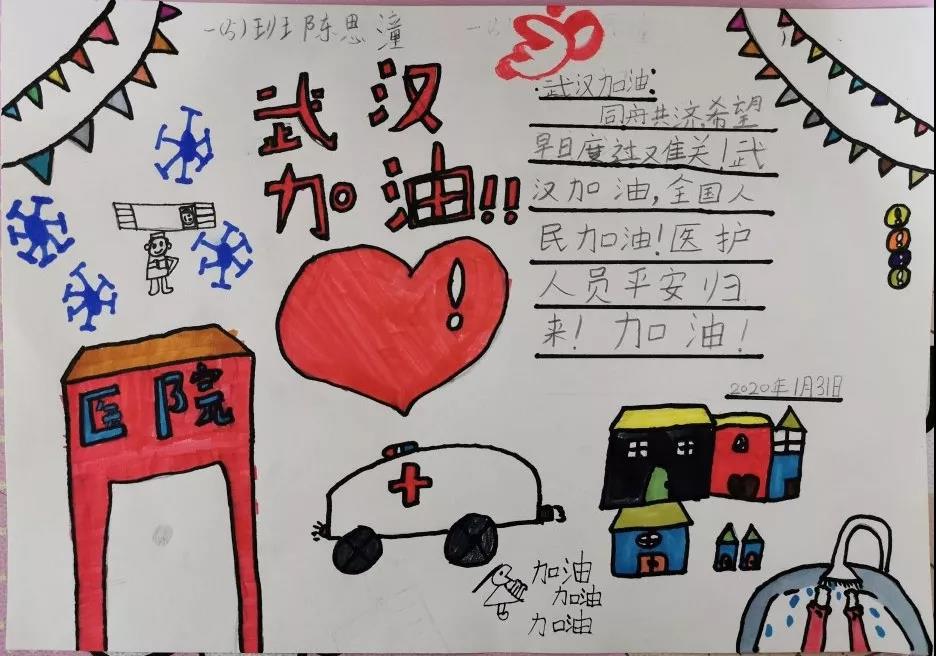 一(5)班 陈思潼
武汉
加油!!
武汉加油:
同舟共济希望
早日度过难关!武
汉加油,全国人
民加油!医护
人员平安归
来!加油!
2020年1月31日
医院
加油
加油
加油